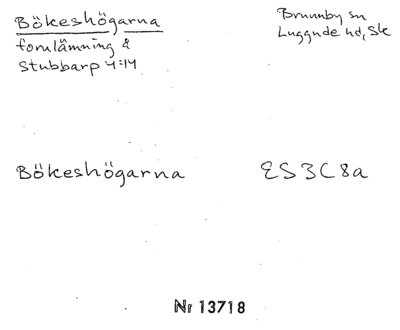 Bökeshögarna
fornlämning å
Stubbarp 4:14
Brunnby sn
Luggude hd, Sk
Bökeshögarna
ES3C8a
Nr 13718